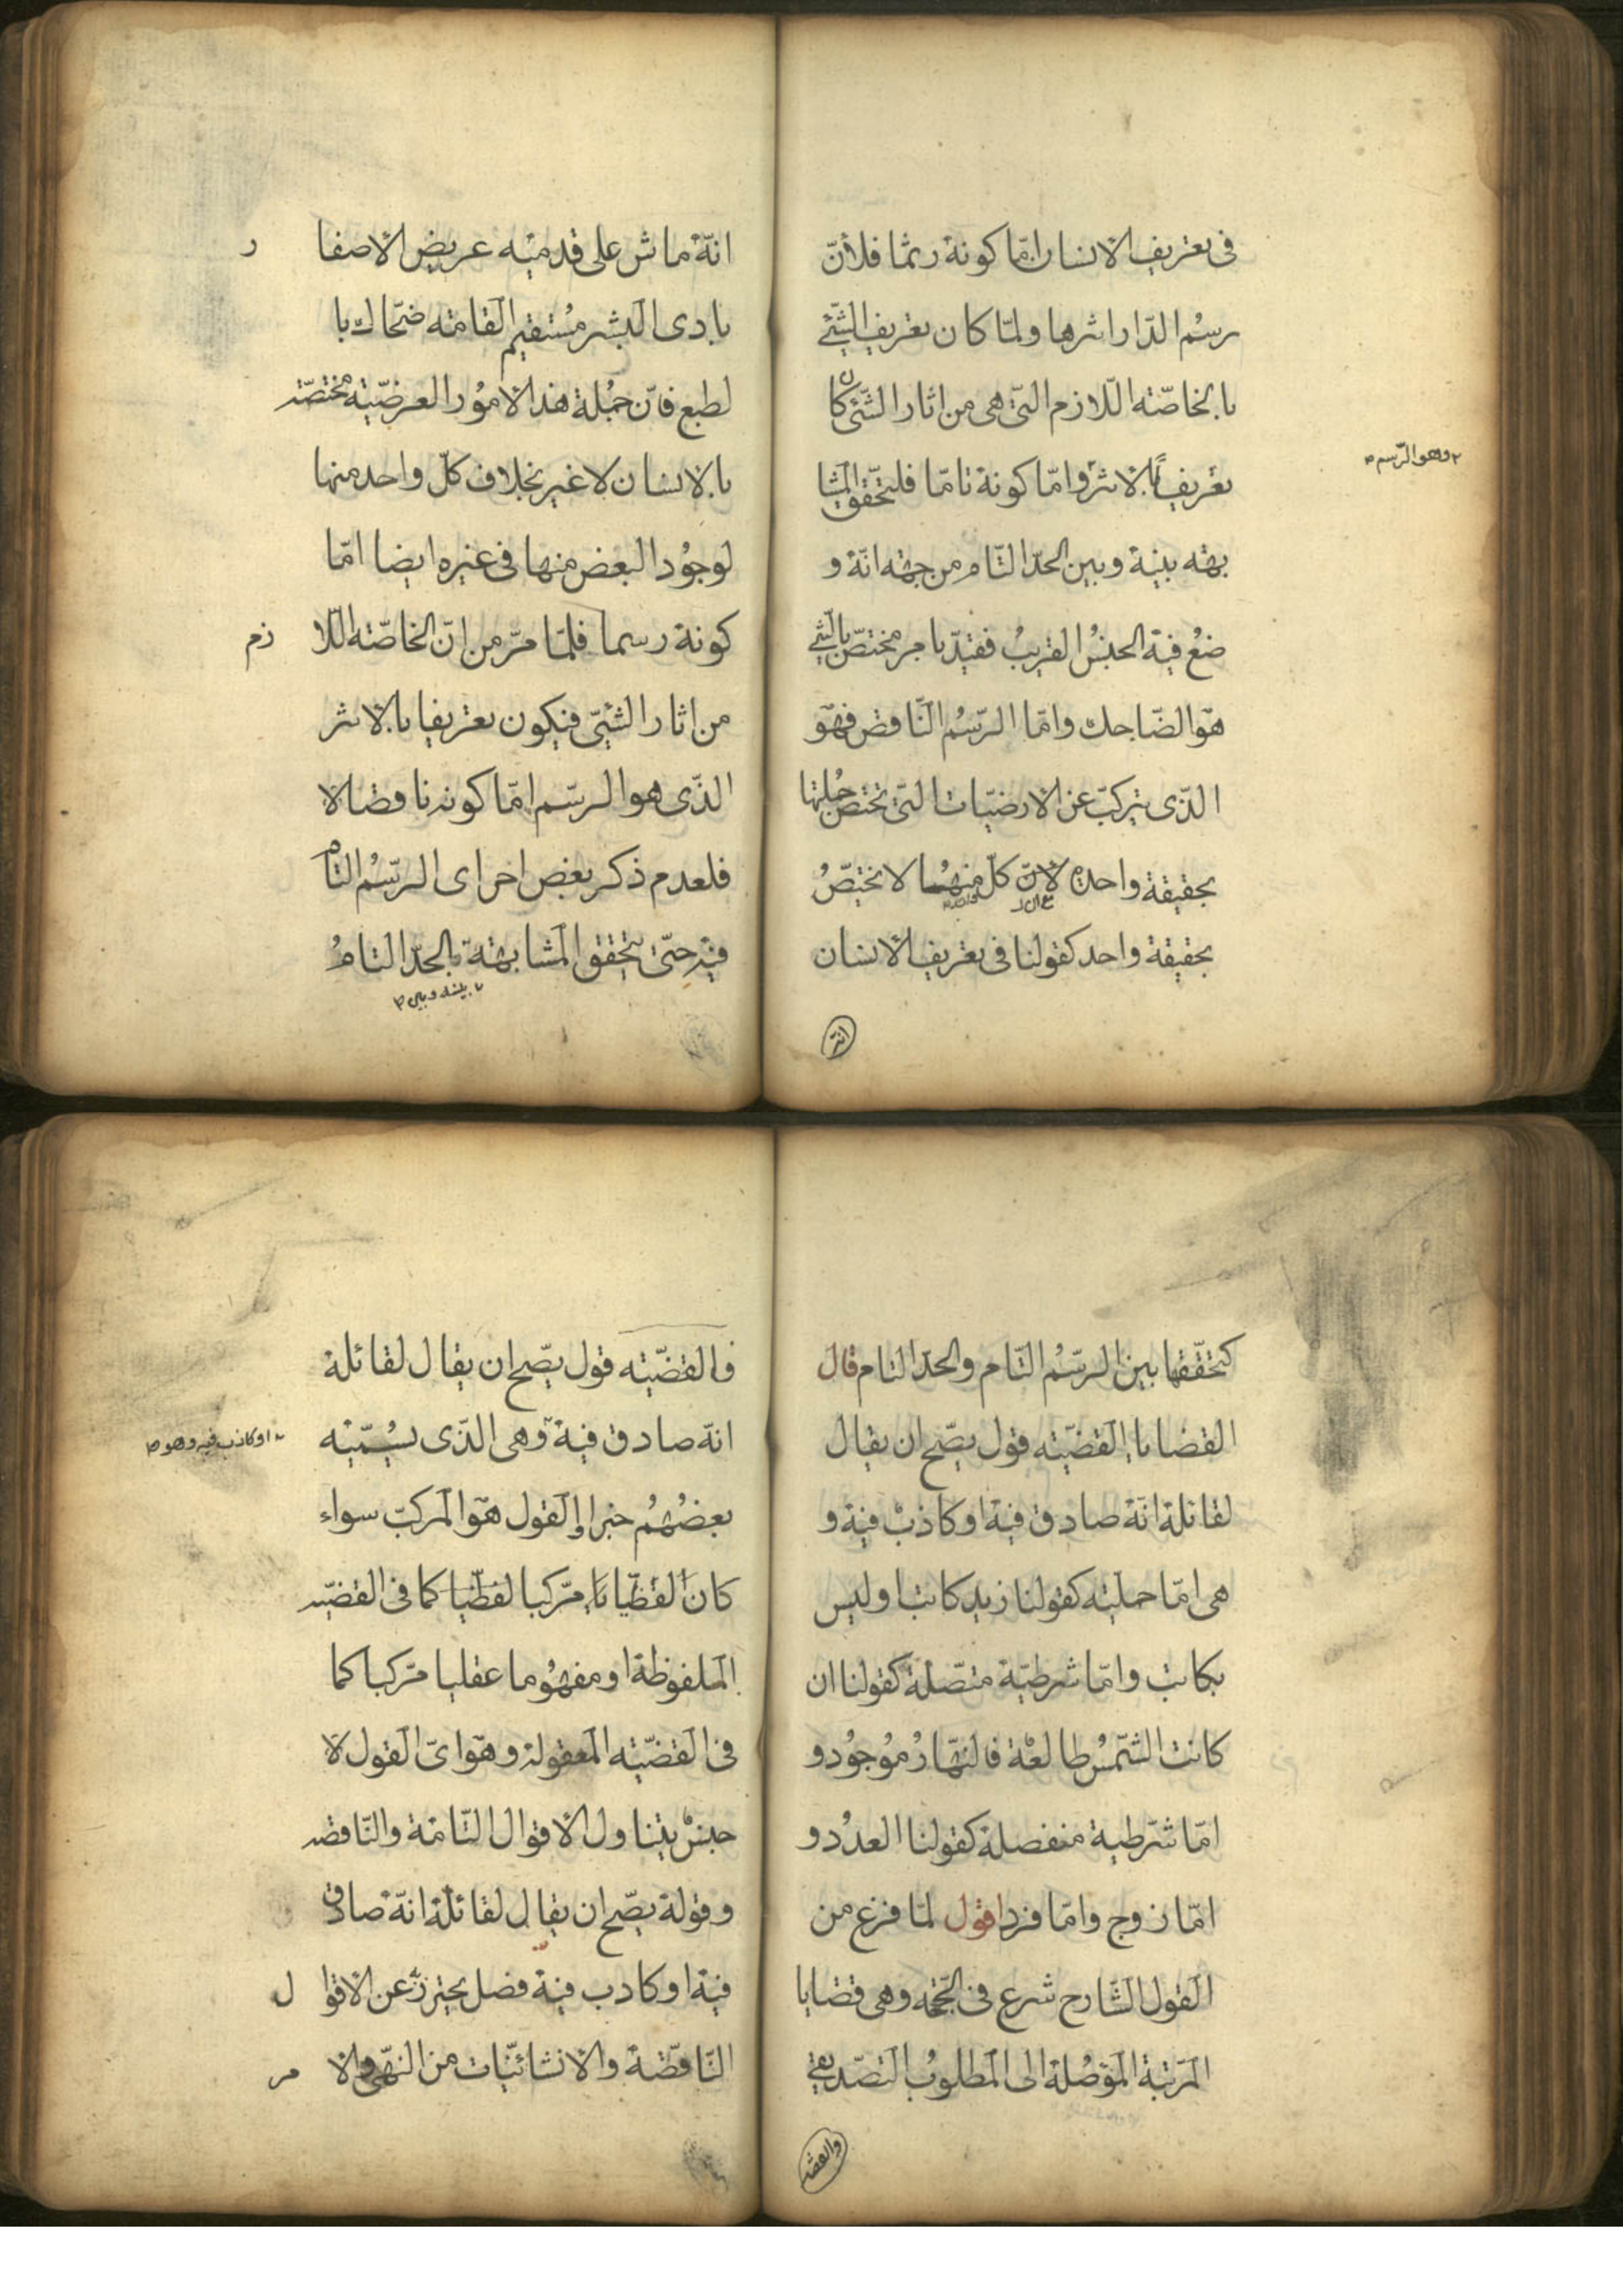 فى تعريف الانسان امّا كونة رسمّا فلأنّ
رسْم الدّار اثرها ولمّا كان تعريف الشّئ
بالخاصّته اللّازم التّى هى من اثار الشّئ كان
تعريفًا بالاثر وامّا كونة تامّا فليتحّقق المشا
٢ وهو الرّسم ص
بهته بينة وبين الحدّ التّام من جهته انّة و
ضعْ فية الجنسُ القريبُ فقيدّ بامر مختصّ بالشّئ
هوّ الضّاحك وامّا الرّسْم النّاقص فهوّ
الذّى يتركبّ عن الارضيّات التّى تختصّ جُملتها
بحقيقة واحدة لانّ كلّ منهُما لا يختصّ
واحد
بحقيقة واحد كقولنا فى تعريف الانسان
انّه
انّة ماش على قدميْه عريض الاصفا ر
بادى البشر مُستقيم القامته ضحّاك با
لطبع فانّ جمُلة هذا الامُور العرضيّة مختصّته
بالانسان لا غير بخلاف كلّ واحد منها
لوجُود البعض منها فى غيره ايضا امّا
كونة رسما فلمّا مرّ من انّ الخاصّته اللّا زم
من اثار الشّئىّ فيكون تعريفا بالاثر
الذّى هو الرسّم امّا كونه ناقصا لا
فلعدم ذكر بعض اجراى الرسّْم التام
فيه حتىّ يتحقق المشابهتة بالحدّ التام
٢ بينه وبين ص
كتحقّقها بين الرسّْم التّام والحدّ التام قال
القضايا القضيّته قول يصّح ان يقال
لقائلة انّة صادق فية او كاذبْ فية و
هى امّا حمليّته كقولنا زيد كاتب او ليس
بكاتب وامّا شرطيّة متصّلة كقولنا ان
كانت الشّمسُ طالعْة فالنهّارُ موُجوُد و
امّا شرّطية منفصلة كقولنا العدُد و
امّا زوج وامّا فرد اقول لمّا فرغ من
القول الشّارح شرع فى الحّجة وهى قضايا
المرتبة الموَصُلة الى المَطلوبُ التصّديقى
والقضيّه
فالقضيّته قول يصّح ان يقال لقائلة
انّة صادق فية وهى الذّى يسُمّيْه
٢ او كاذب فيه وهو ص
بعضُهُم خبرا القول هوّ المركبّ سواء
كان لفظّيا مرّكبا لفظّيا كما فى القضيّه
الملفوظة او مفهُوما عقليا مرّكبا كما
فى القضيّته المَعقولة وهوّ اىّ القول لا
جنسْ يتناول الاقوال التّامّة والنّاقصه
وقولة يصّح ان يقال لقائلة انّة صادق
فية او كادب فية فصل يحترز عن الاقوا ل
النّاقصّة والانشائيّات من النهّى والا مر